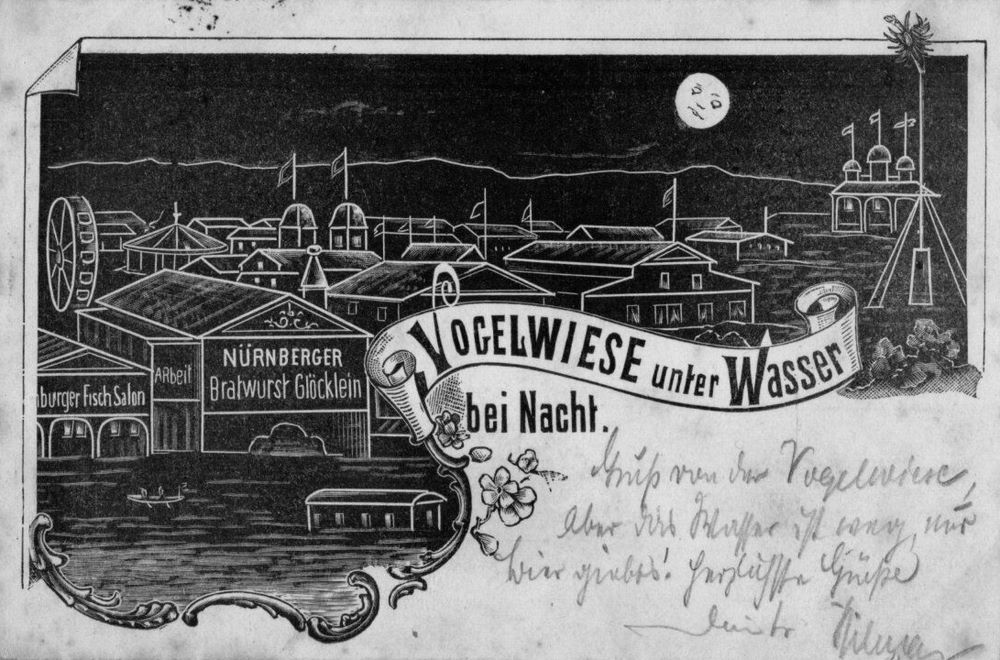 nburger Fisch Salon
Arbeit
NÜRNBERGER
Bratwurst Glöcklein
VOGELWIESE unter Wasser
bei Nacht.
Gruß von der Vogelwiese,
Aber das Wasser ist weg, nur
Bier giebts! Herzlichste Grüße